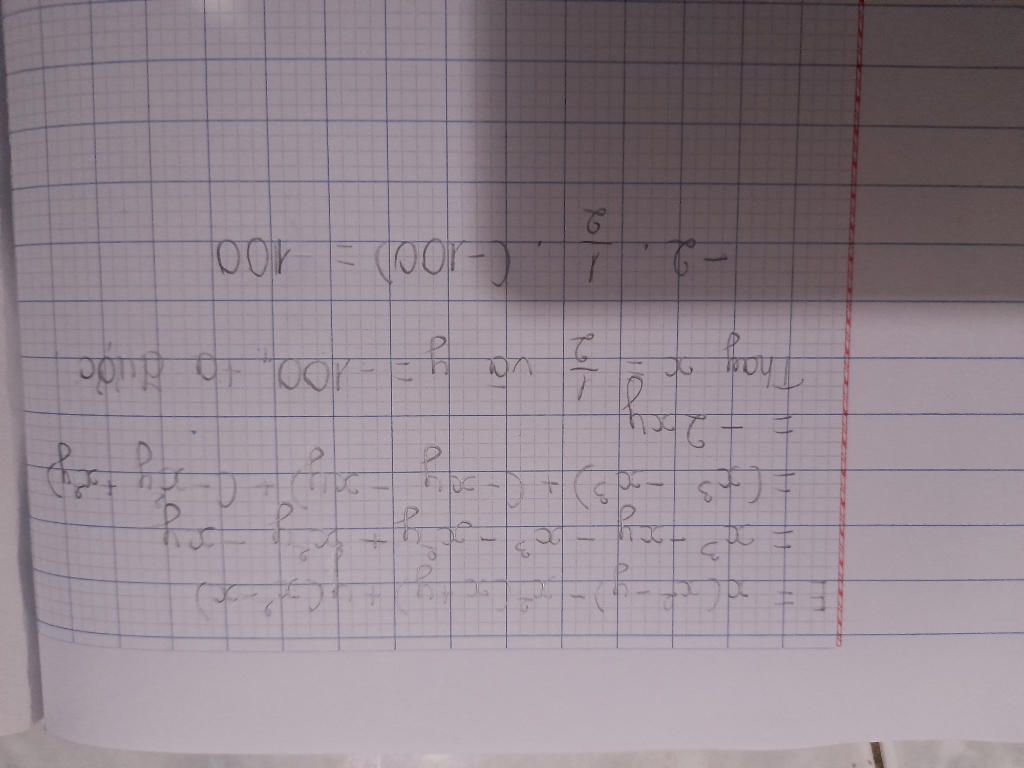 E = x(x² - y) - x²(x + y) + y(x² - x)
= x³ - xy - x³ - x²y + x²y - xy
= (x³ - x³) + (-xy - xy) + (-x²y + x²y)
= -2xy
Thay x = 1/2 và y = -100 ta được
-2 . 1/2 . (-100) = 100